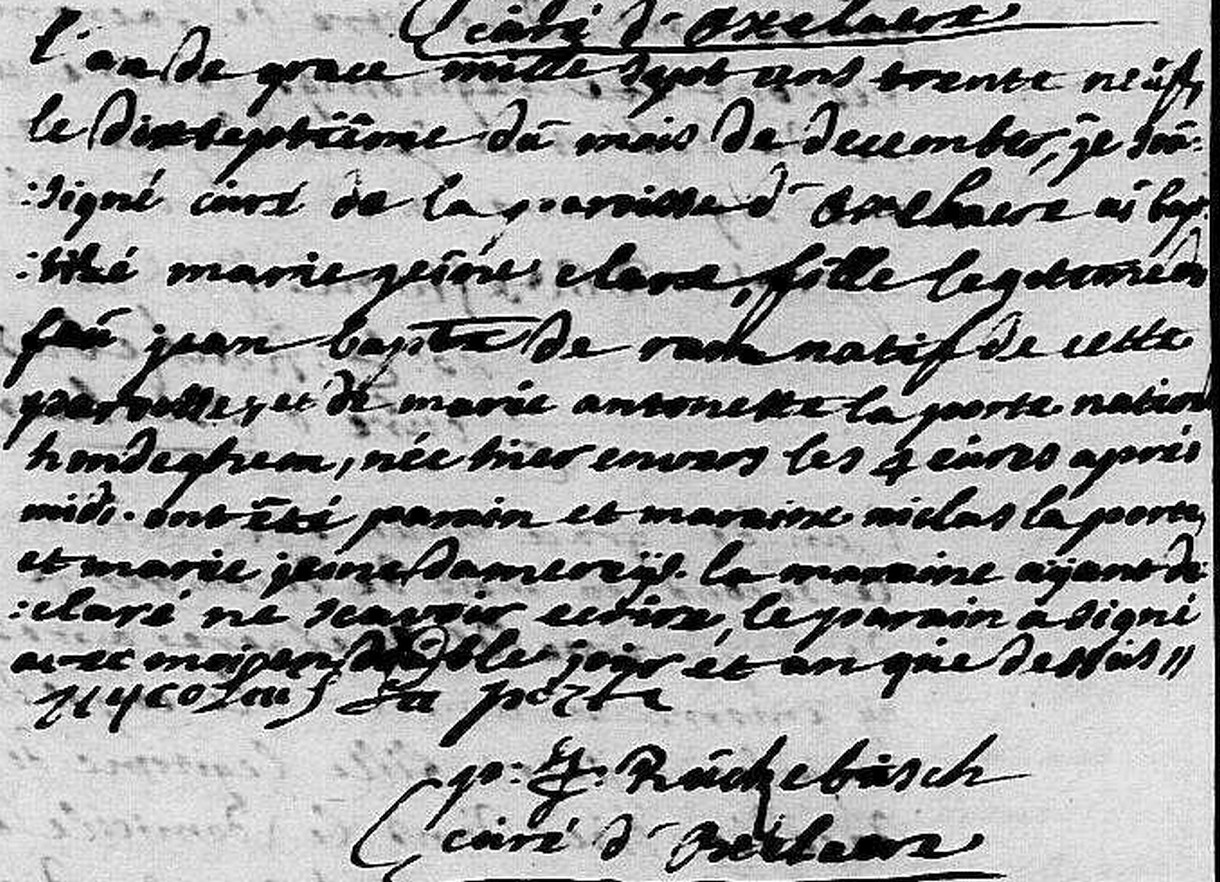 curé d'Oxelaere
l'an de grace mille sept cens trente neuf,
le dixseptiême du mois de decembre, je sou-
:signé curé de la paroisse d'Oxelaere ai bap-
:tisé marie jeine clare, fille legetime de
feu jean bapte de ram natif de cette
paroisse, et de marie antonette la porte native
hondeghem, née hier envers les 4 eures aprés
midi. ont êté parain et maraine niclas la porte,
et marie jeine damereÿ. la maraine aÿant de-
:claré ne scavoir ecrire, le parain a signé
avec moi double jour et an que dessus //
nycolaus la porte
p: J: Ruckebusch
curé d'Oxelaere